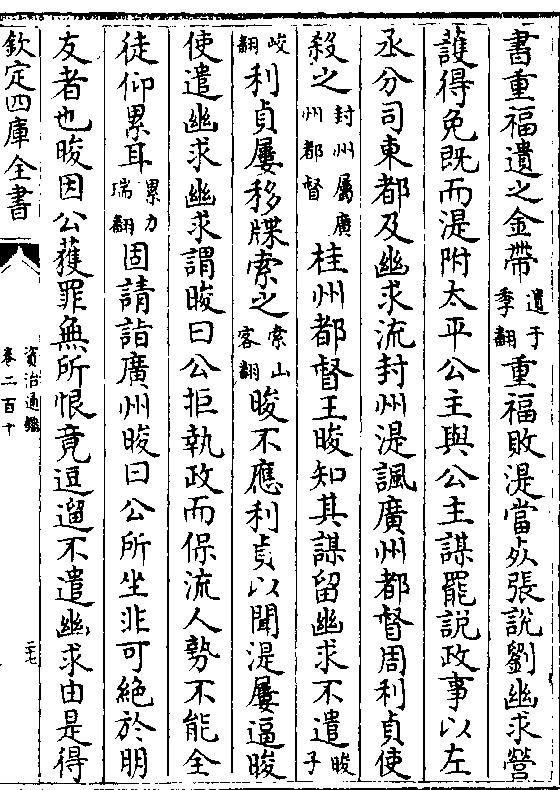 書重福遺之金帶遺于季翻重福敗湜當死張説劉幽求營
護得免既而湜附太平公主與公主謀罷説政事以左
丞分司東都及幽求流封州湜諷廣州都督周利貞使
殺之封州屬廣州都督桂州都督王晙知其謀留幽求不遣晙子
峻翻利貞屢移牒索之索山客翻晙不應利貞以聞湜屢逼晙
使遣幽求幽求謂晙曰公拒執政而保流人勢不能全
徒仰累耳累力瑞翻固請詣廣州晙曰公所坐非可絶於朋
友者也晙因公獲罪無所恨竟逗遛不遣幽求由是得
欽定四庫全書
資治通鑑
卷二百十
二七